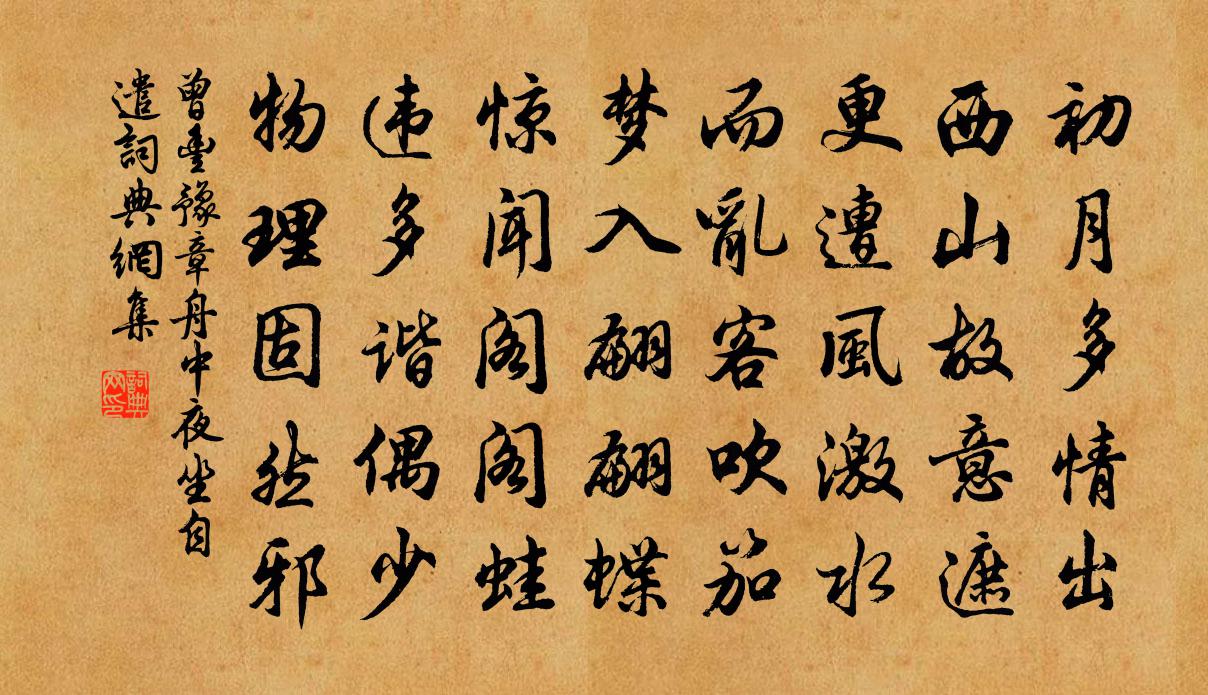 初月多情出
西山故意遮
更遭風激水
而亂客吹笳
梦入翩翩蝶
惊闻阁阁蛙
违多谐偶少
物理固然邪
曾豊豫章舟中夜坐自
遣詞典網集
詞典
网印